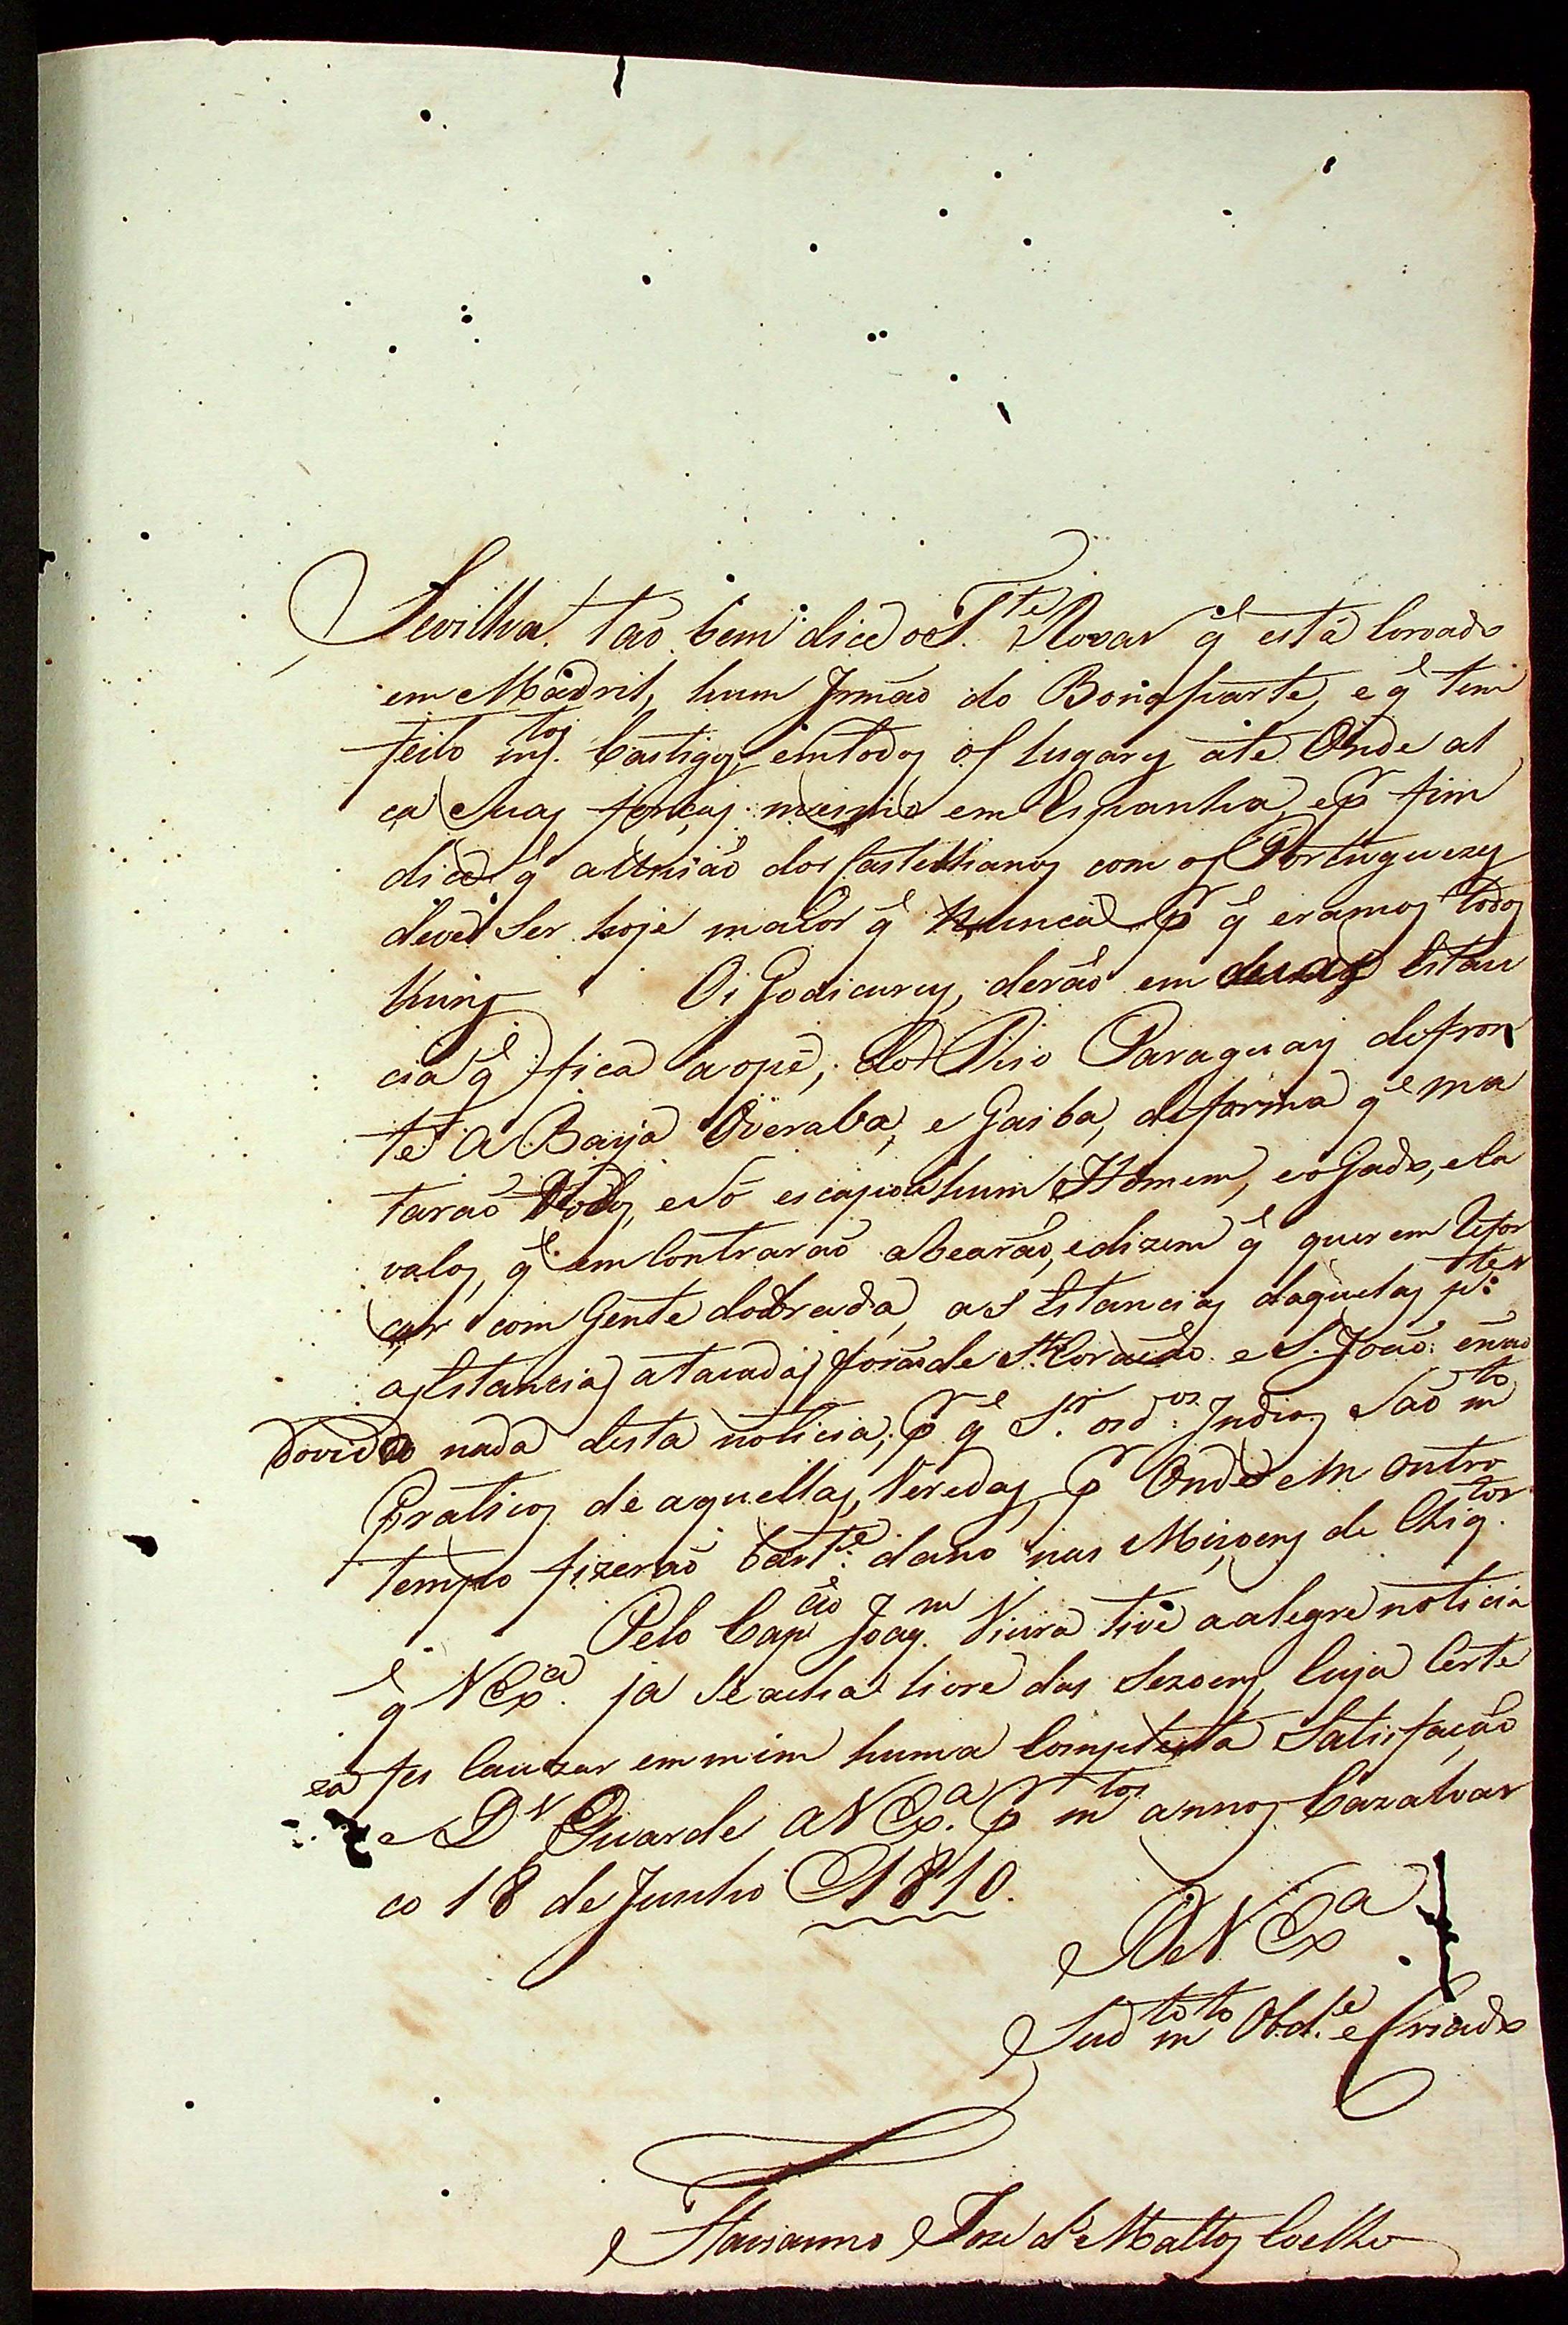 Sevilha. tão bem dice o S.te Rosas q̃ está Coroado
em Madrid, hum Jrmão do Bonaparte, e q̃ tem
feito m.tos Castigos em todos os Lugares ate Onde al
ca Suas forças mesmo em Espanha, e p.r fim
dice q̃ a União dos Castelhanos com os Portuguezes
deve Ser hoje maior q̃ Nunca p.r q̃ eramos todos
huns Os Goaicurus, derão em duas Estan
cia q̃ fica ao pé, do Rio Paraguay defron
te A Baya Overaba, e Gaiba, de forma q̃ ma
tarão todos, e Só escapou hum Homem, e o Gado, e Ca
valos, q̃ em Contrarão abearão, e dizem q̃ querem Refor
çar com Gente dobrada, as Estancias daquelas p.tes
as Estancias atacadas forão de S.ta Coração e S. João: e não
dovido nada desta noticia; p.r q̃ S.r os d.os Indios São m.to
Praticos de aquellas Veredas, p.r Onde em outro
tempo fizerão bast.e dano nas Misoens de Chiq.tos
Pelo Cap.ão Joaq.m Vieira tive a alegre noticia
q̃ V Ex.a ja Se acha livre das Sezoens, Cuja Certe
za fes Cauzar em mim huma Completa Satisfação
e D.s Guarde a V Ex.a p.r m.tos annos Cazalvas
co 18 de Junho 1810.
De V Ex.a
Sud.to m.to Obd.e e Criado
Flavianno Joze d' Mattos Coelho